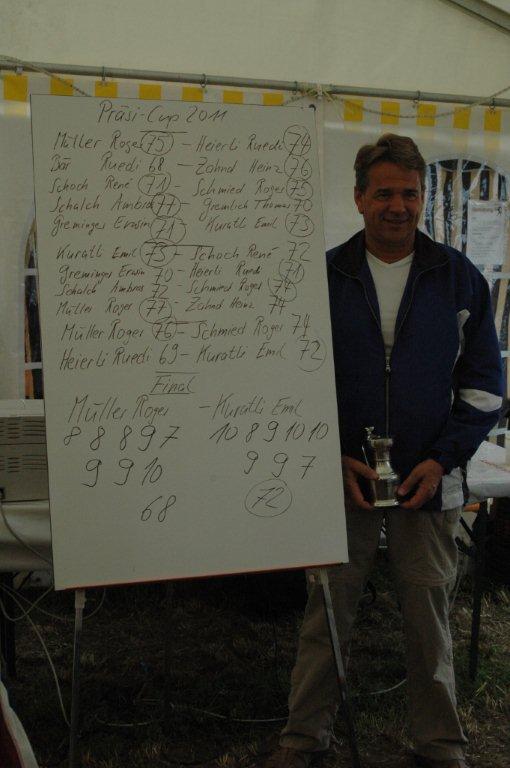 Präsi-Cup 2011
Müller Roger 75 - Heierli Ruedi 74
Bär Ruedi 68 - Zahnd Heinz 76
Schoch René 71 - Schmied Roger 75
Schalch Ambros 77 - Gremlich Thomas 70
Greminger Erwin 71 - Kuratli Emil 73
Kuratli Emil 75 - Schoch René 72
Greminger Erwin 70 - Heierli Ruedi 71
Schalch Ambros 72 - Schmied Roger 74
Müller Roger 77 - Zahnd Heinz 74
Müller Roger 76 - Schmied Roger 74
Heierli Ruedi 69 - Kuratli Emil 72
Final
Müller Roger - Kuratli Emil
8 8 8 9 7 10 8 9 10 10
9 9 10 9 9 7
68 72